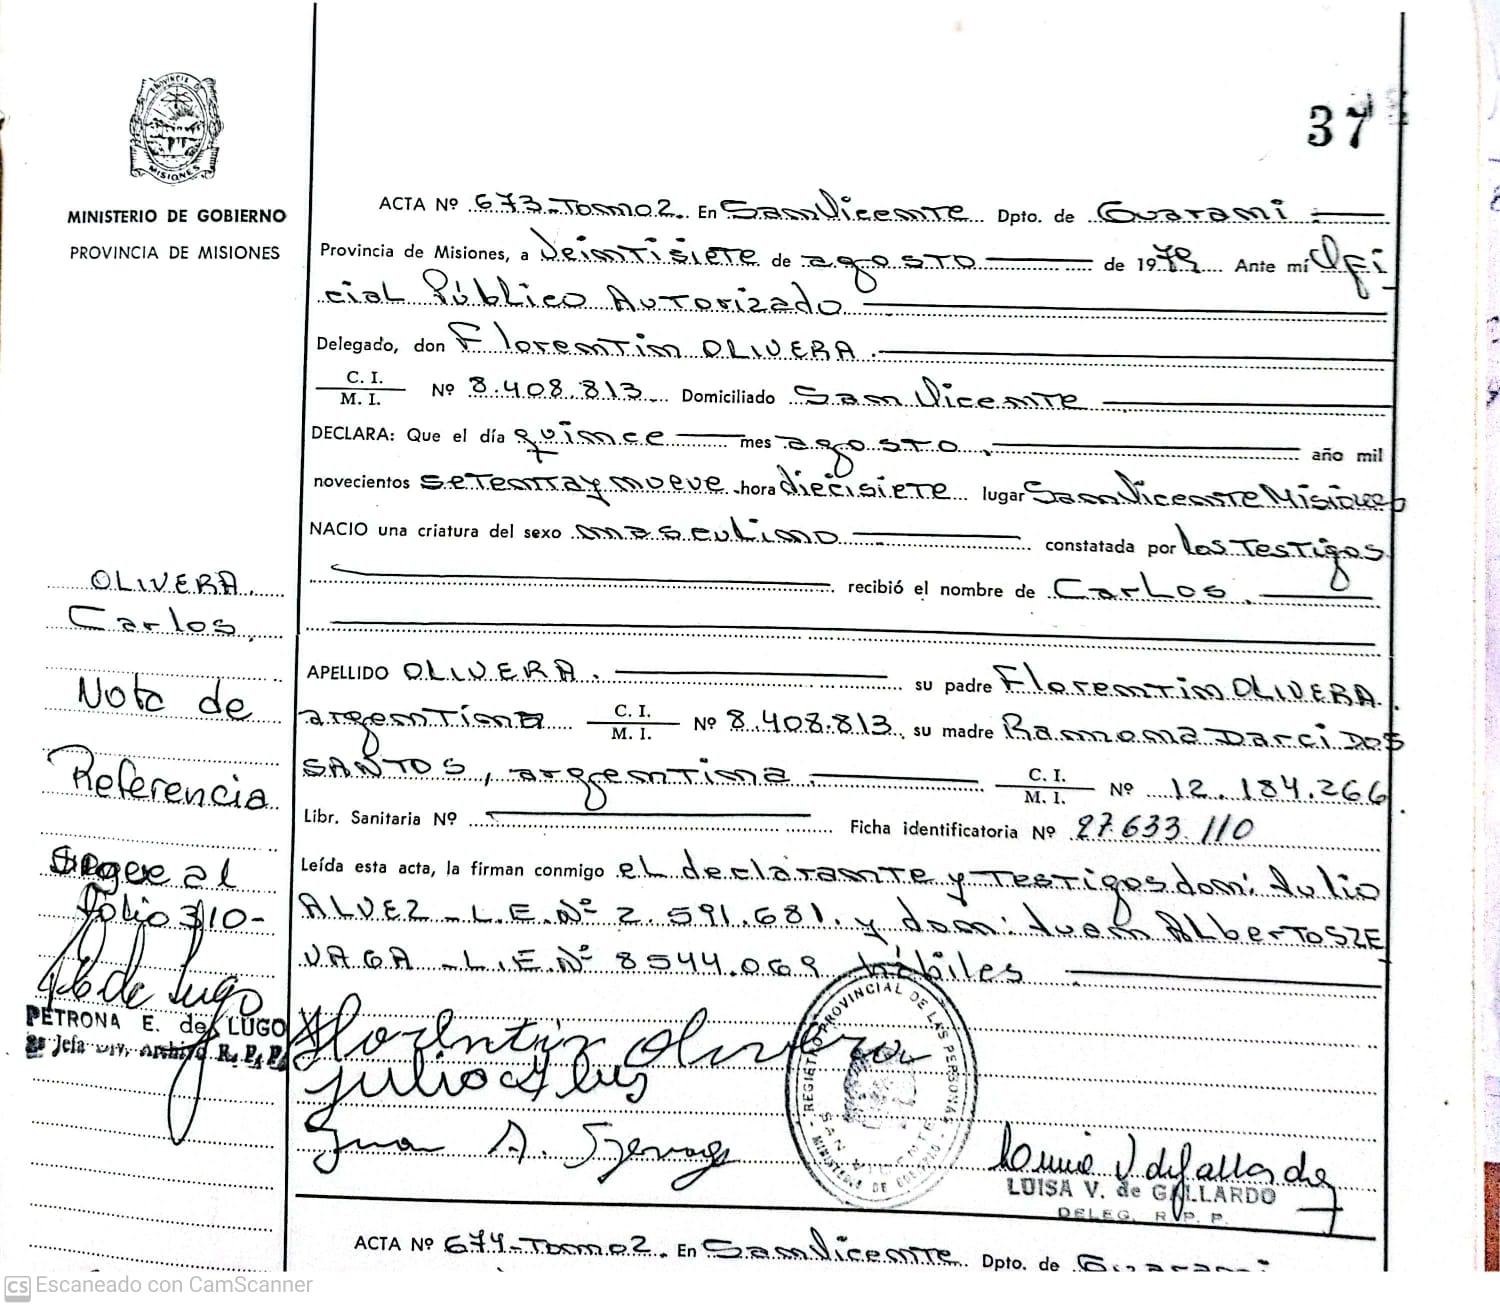 37
PROVINCIA D
MISIONES
MINISTERIO DE GOBIERNO
PROVINCIA DE MISIONES
ACTA Nº 673-Tomo2. En San Vicente Dpto. de Guaraní
Provincia de Misiones, a Veintisiete de agosto de 1979 Ante mí Ofi
cial Público Autorizado
Delegado, don Florentin OLIVERA.
C. I.
M. I. Nº 8.408.813 Domiciliado San Vicente
DECLARA: Que el día quince mes agosto, año mil
novecientos setenta y nueve hora diecisiete lugar San Vicente Misiones
NACIO una criatura del sexo masculino constatada por los testigos
recibió el nombre de Carlos.
APELLIDO OLIVERA. su padre Florentin OLIVERA.
argentino C. I.
M. I. Nº 8.408.813, su madre Ramona Darci DOS
SANTOS, argentina C. I.
M. I. Nº 12.184.266.
Libr. Sanitaria Nº Ficha identificatoria Nº 27.633.110
Leída esta acta, la firman conmigo el declarante y testigos don: Julio
ALVEZ - L.E.Nº 2.591.681. y don: Juan Alberto SZE
VAGA - L.E.Nº 8544.069 hábiles
OLIVERA.
Carlos.
Nota de
Referencia
Sigue al
folio 310-
PETRONA E. de LUGO
Jefa Div. Archivo R. P. P.
Florentin Olivera
Julio Alves
Juan A. Szevaga
REGISTRO PROVINCIAL DE LAS PERSONAS
SAN VICENTE
MINISTERIO DE GOBIERNO
Luisa V de Gallardo
LUISA V. de GALLARDO
DELEG. R. P. P.
ACTA Nº 674-Tomo2. En San Vicente Dpto. de Guaraní
CS Escaneado con CamScanner